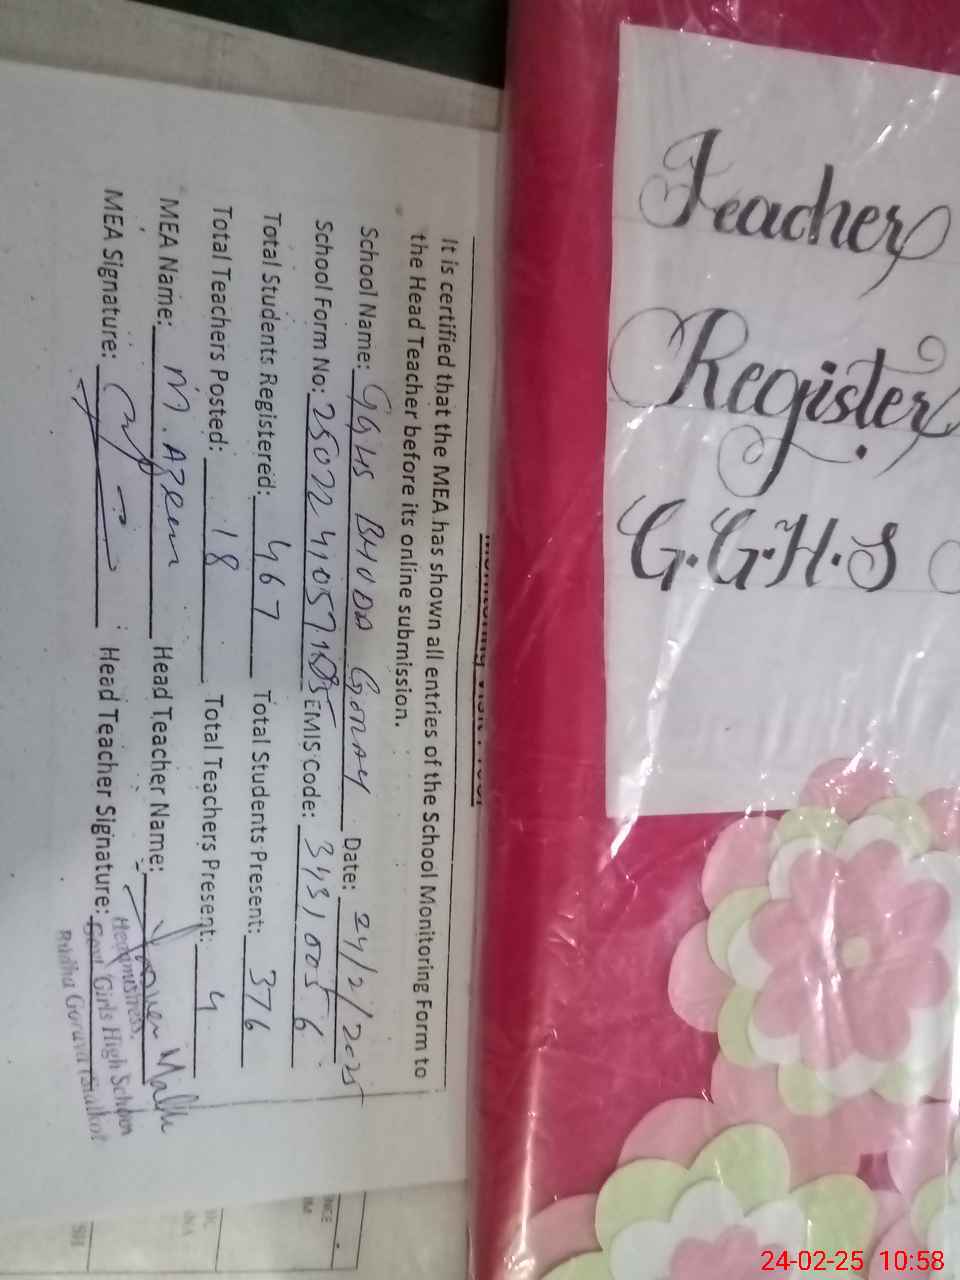 Teacher
Register
G.G.H.S
It is certified that the MEA has shown all entries of the School Monitoring Form to
the Head Teacher before its online submission.
School Name: GGHS BHUDA GORAY Date: 24/2/2025
School Form No: EMIS Code: 34310056
Total Students Registered: 467 Total Students Present: 376
Total Teachers Posted: 18 Total Teachers Present: 4
MEA Name: M. Azeem Head Teacher Name:
MEA Signature: Head Teacher Signature:
Headmistress
Govt Girls High School
24-02-25 10:58